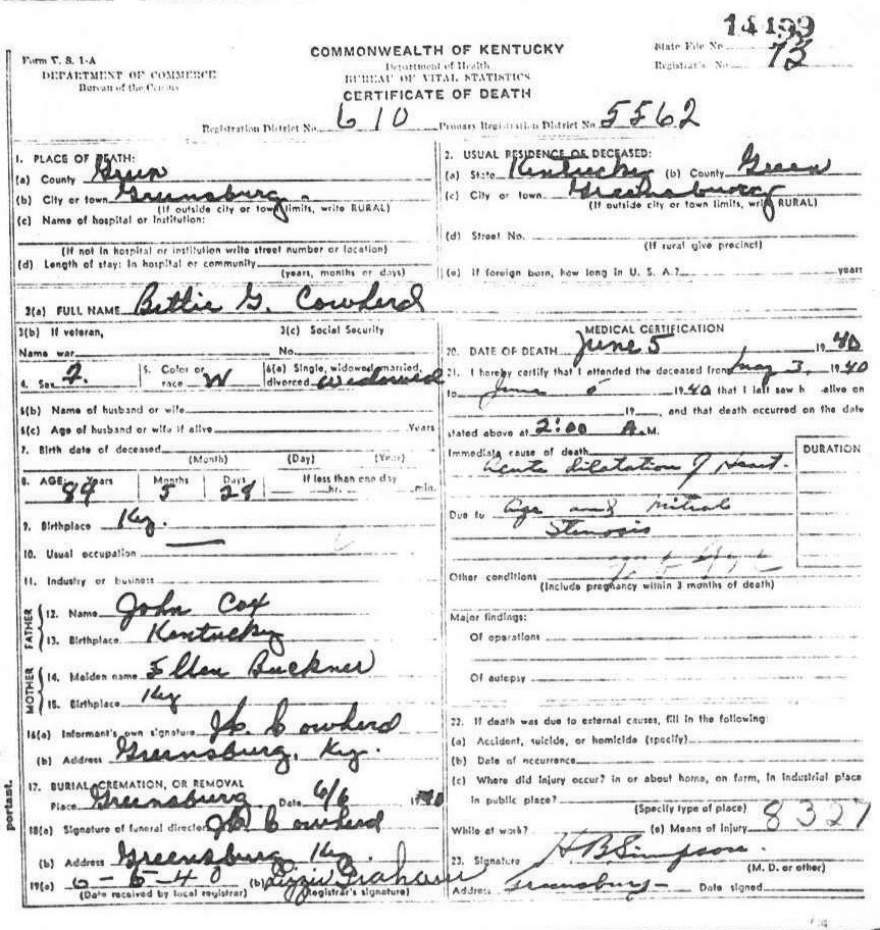 14199
Form V. S. 1-A
DEPARTMENT OF COMMERCE
Bureau of the Census
COMMONWEALTH OF KENTUCKY
Department of Health
BUREAU OF VITAL STATISTICS
CERTIFICATE OF DEATH
State File No.
Registrar's No. 73
Registration District No. 610 Primary Registration District No. 5562
1. PLACE OF DEATH:
(a) County Green
(b) City or town Greensburg.
(If outside city or town limits, write RURAL)
(c) Name of hospital or institution:
(If not in hospital or institution write street number or location)
(d) Length of stay: In hospital or community
(years, months or days)
2. USUAL RESIDENCE OF DECEASED:
(a) State Kentucky (b) County Green
(c) City or town Greensburg
(If outside city or town limits, write RURAL)
(d) Street No.
(If rural give precinct)
(e) If foreign born, how long in U. S. A.? years
3(a) FULL NAME Bettie G. Cowherd
3(b) If veteran, 3(c) Social Security
Name war No.
4. Sex F. 5. Color or race W 6(a) Single, widowed, married, divorced widowed
6(b) Name of husband or wife
6(c) Age of husband or wife if alive Years
7. Birth date of deceased
(Month) (Day) (Year)
8. AGE: Years Months Days If less than one day
89 5 28 hr. min.
9. Birthplace Ky.
10. Usual occupation
11. Industry or business
FATHER
12. Name John Cox
13. Birthplace Kentucky
MOTHER
14. Maiden name Ellen Buckner
15. Birthplace Ky
16(a) Informant's own signature Cowherd
(b) Address Greensburg, Ky.
17. BURIAL, CREMATION, OR REMOVAL
Place Greensburg Date 6/6 1940
18(a) Signature of funeral director Cowherd
(b) Address Greensburg Ky.
19(a) 6-5-40 (b) Lizzie Graham
(Date received by local registrar) (Registrar's signature)
MEDICAL CERTIFICATION
20. DATE OF DEATH June 5 1940
21. I hereby certify that I attended the deceased from May 3, 1940
to June 5 1940 that I last saw h alive on
19 , and that death occurred on the date
stated above at 2:00 A.M.
Immediate cause of death
Acute dilatation of Heart.
DURATION
Due to Age and mitral
Stenosis
Other conditions
(Include pregnancy within 3 months of death)
Major findings:
Of operations
Of autopsy
22. If death was due to external causes, fill in the following:
(a) Accident, suicide, or homicide (specify)
(b) Date of occurrence
(c) Where did injury occur? in or about home, on farm, in industrial place
in public place?
(Specify type of place)
While at work? (e) Means of injury 8327
23. Signature H B Simpson.
(M. D. or other)
Address Greensburg Date signed
portant.